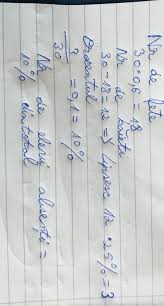 Nr de fete
30·0,6 = 18
Nr de baieti
30-18=12 => lipsesc 12·25%=3
Procentul
3/30 = 0,1 = 10%
Nr de elevi absenți =
10% din total